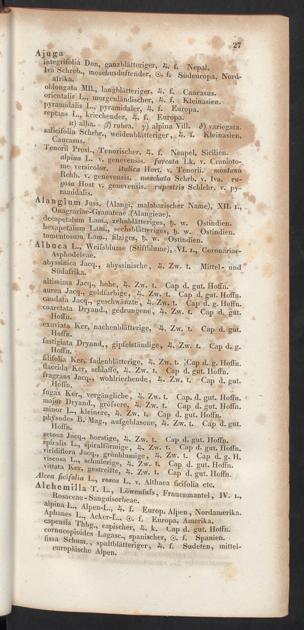 27
Ajuga
integrifolia Don, ganzblätteriger, ♃. f. Nepal.
Iva Schreb., moschusduftender, ⊙. f. Südeuropa, Nord-
afrika.
oblongata MB., langblätteriger, ♃. f. Caucasus.
orientalis L., morgenländischer, ♃. f. Kleinasien.
pyramidalis L., pyramidaler, ♃. f. Europa.
reptans L., kriechender, ♃. f. Europa.
α) alba. β) rubra. γ) alpina Vill. δ) variegata.
salicifolia Schrbr., weidenblätteriger, ♃. f. Kleinasien,
Caucasus.
Tenorii Presl., Tenorischer, ♃. f. Neapel, Sicilien.
alpina L. v. genevensis. furcata Lk. v. Cranioto-
me versicolor. italica Hort. v. Tenorii. montana
Rchb. v. genevensis. moschata Schrb. v. Iva. ru-
gosa Host v. genevensis. rupestris Schlehr. v. py-
ramidalis.
Alangium Juss. (Alangi, malabarischer Name), XII. 1.,
Onagrariae-Granateae (Alangieae).
decapetalum Lam., zehnblätteriges, ♄. w. Ostindien.
hexapetalum Lam., sechsblätteriges, ♄. w. Ostindien.
tomentosum Lam., filziges, ♄. w. Ostindien.
Albuca L., Weifsblume (Stiftblume), VI. 1., Coronariae-
Asphodeleae.
abyssinica Jacq., abyssinische, ♃. Zw. t. Mittel- und
Südafrika.
altissima Jacq., hohe, ♃. Zw. t. Cap d. gut. Hoffn.
aurea Jacq., goldfarbige, ♃. Zw. t. Cap d. gut. Hoffn.
caudata Jacq., geschwänzte, ♃. Zw. t. Cap d. g. Hoffn.
coarctata Dryand., gedrungene, ♃. Zw. t. Cap d. gut.
Hoffn.
exuviata Ker, nachenblätterige, ♃. Zw. t. Cap d. gut.
Hoffn.
fastigiata Dryand., gipfelständige, ♃. Zw. t. Cap d. g.
Hoffn.
filifolia Ker, fadenblätterige, ♃. Zw. t. Cap d. g. Hoffn.
flaccida Ker, schlaffe, ♃. Zw. t. Cap d. gut. Hoffn.
fragrans Jacq., wohlriechende, ♃. Zw. t. Cap d. gut.
Hoffn.
fugax Ker, vergängliche, ♃. Zw. t. Cap d. gut. Hoffn.
major Dryand., gröfsere, ♃. Zw. t. Cap d. gut. Hoffn.
minor L., kleinere, ♃. Zw. t. Cap d. gut. Hoffn.
physodes B. Mag., aufgeblasene, ♃. Zw. t. Cap d. gut.
Hoffn.
setosa Jacq., borstige, ♃. Zw. t. Cap d. gut. Hoffn.
spiralis L., spiralförmige, ♃. Zw. t. Cap d. gut. Hoffn.
viridiflora Jacq., grünblumige, ♃. Zw. t. Cap d. g. H.
viscosa L., schmierige, ♃. Zw. t. Cap d. gut. Hoffn.
vittata Ker, gestreifte, ♃. Zw. t. Cap d. gut. Hoffn.
Alcea ficifolia L., rosea L. v. Althaea ficifolia etc.
Alchemilla T. L., Löwenfufs, Frauenmantel, IV. 1.,
Rosaceae-Sanguisorbeae.
alpina L., Alpen-L., ♃. f. Europ. Alpen, Nordamerika.
Aphanes L., Acker-L., ⊙. f. Europa, Amerika.
capensis Thbg., capischer, ♃. k. Cap d. gut. Hoffn.
cornucopioides Lagasc., spanischer, ⊙. f. Spanien.
fissa Schum., spaltblätteriger, ♃. f. Sudeten, mittel-
europäische Alpen.